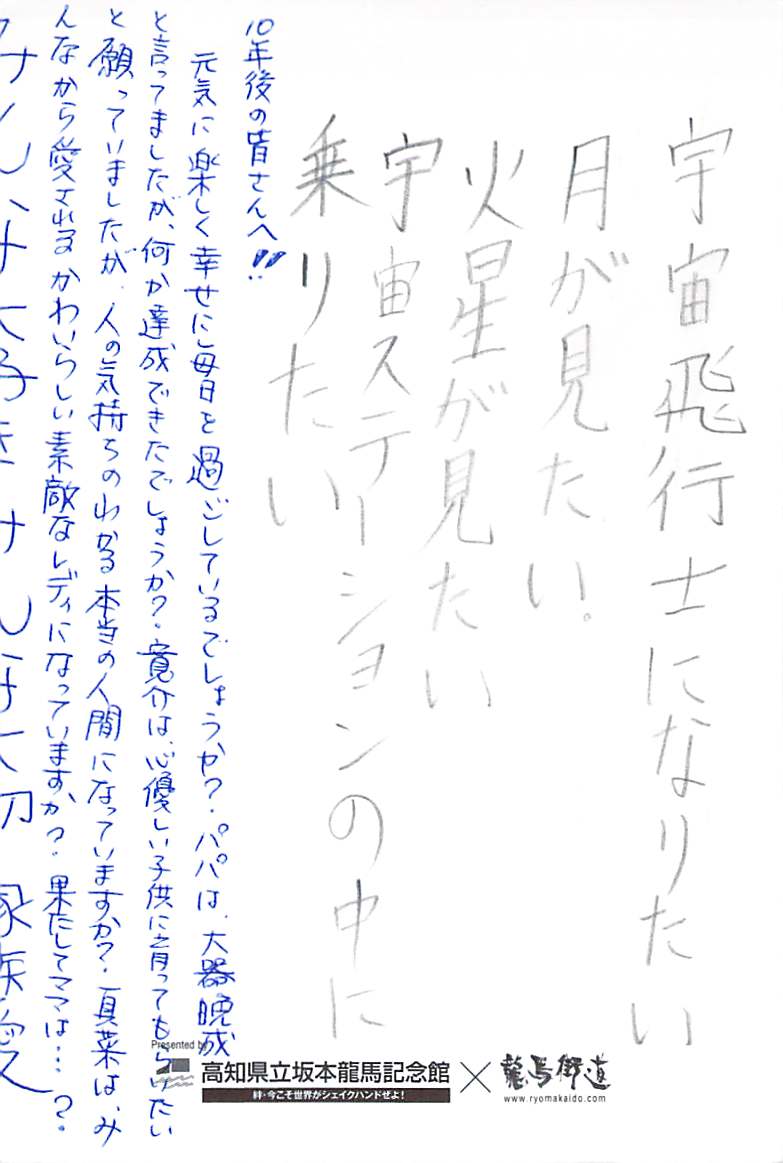 宇宙飛行士になりたい
月が見たい。
火星が見たい
宇宙ステーションの中に
乗りたい
10年後の皆さんへ!!
元気に楽しく幸せに毎日を過ごしているでしょうか?。パパは、大器晩成
と言ってましたが、何か達成できたでしょうか?。寛介は、心優しい子供に育ってもらいたい
と願っていましたが、人の気持ちのわかる本当の人間になっていますか?。夏菜は、み
んなから愛されるかわいらしい素敵なレディになっていますか?。果たしてママは…?。
Presented by
高知県立坂本龍馬記念館×龍馬街道
絆・今こそ世界がシェイクハンドぜよ!
www.ryomakaido.com